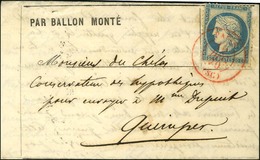 PAR BALLON MONTÉ
Monsieur du Chélas
Conservateur des hypothèques
pour envoyer à M
Quimper